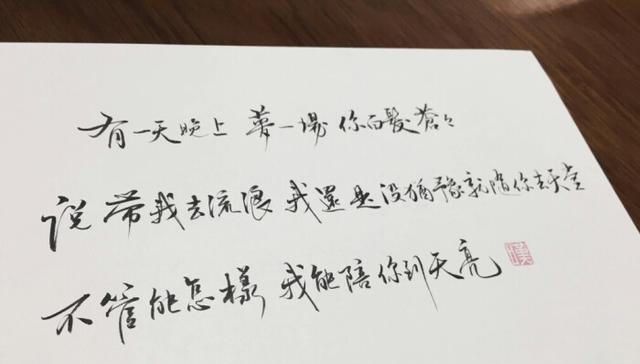 有一天晚上 夢一場 你白髮蒼々
说带我去流浪 我還是没猶豫 就随你去天堂
不管能怎樣 我能陪你到天亮